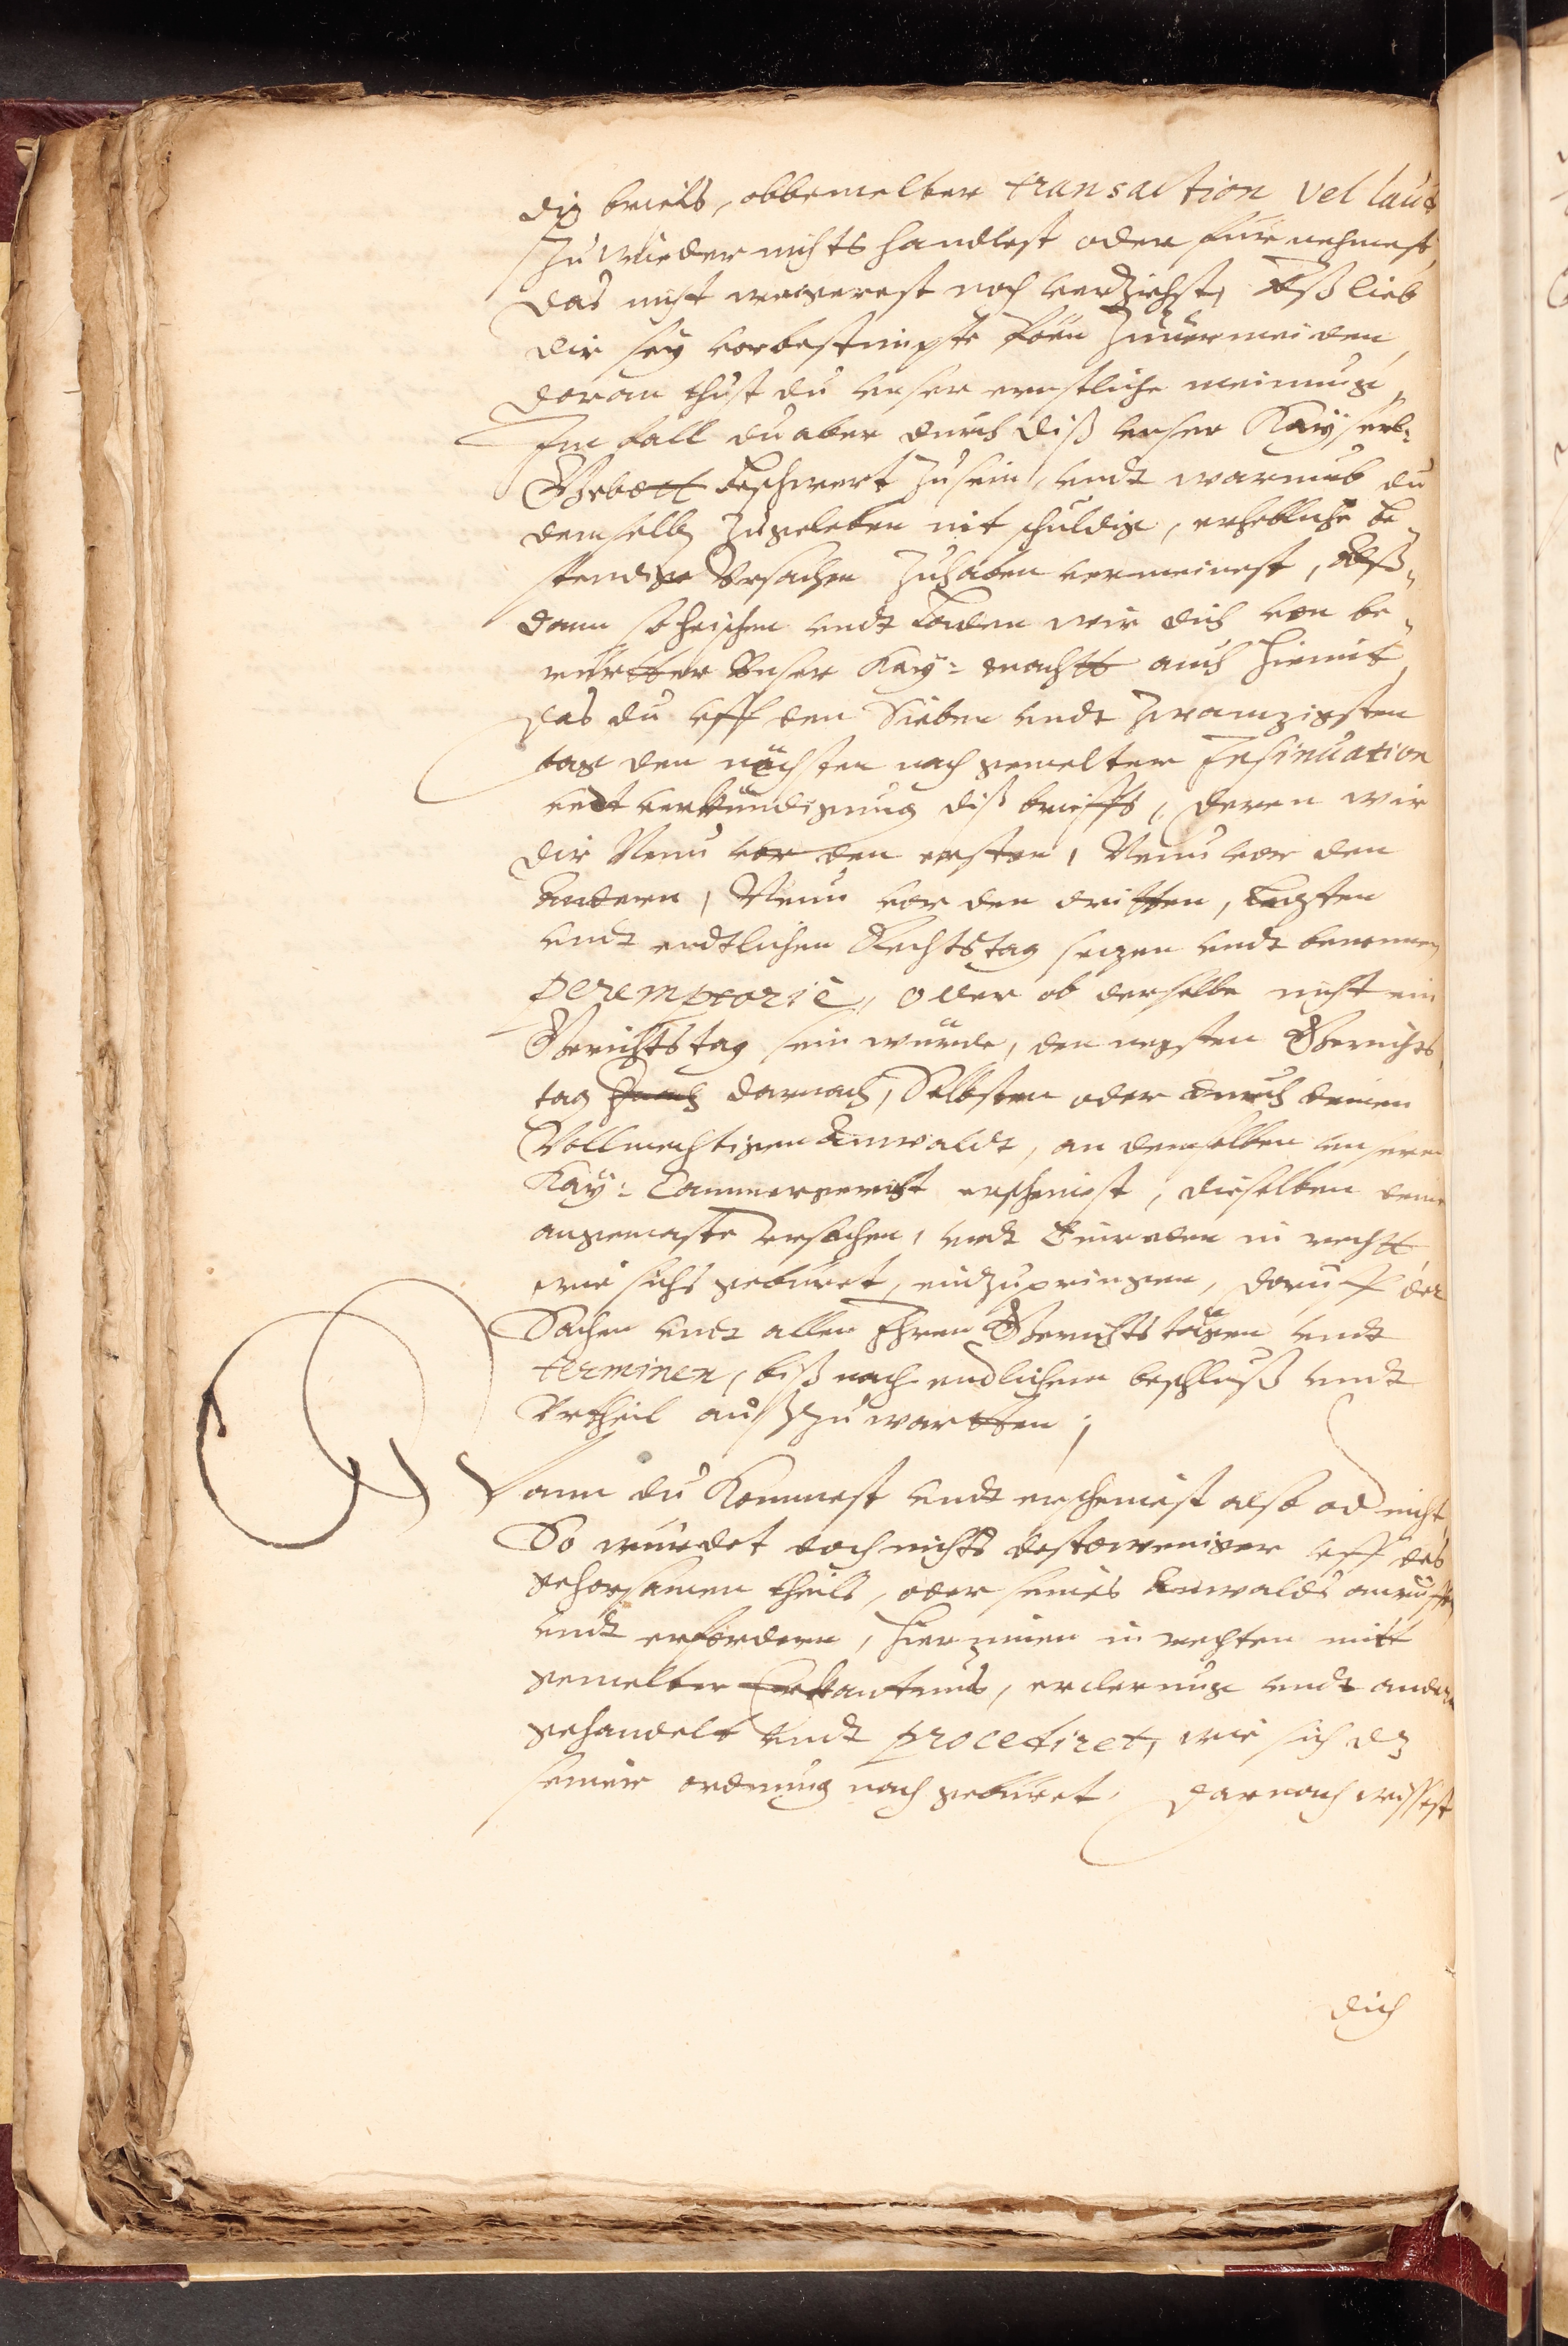 diß brieffs, obbemelter transaction vel laud
Zuwieder nichts handlest oder fürnehmest,
das nicht wegerest noch verziehest, Alß lieb
dir sey vorbestimpte Pöen Zuuermeiden,
doran thust du unser ernstliche meinung,
Im fall du aber durch diß unser Kayserl:
Gebott beschwert Zu sein, undt warumb du
demselben Zugeleben nit schuldig, erhebliche be-
stendige Ursachen Zuhaben vermeinest, Alß-
dann so heischen undt Laden wir dich von be-
rürtter Unser Kay: machtt auch hiemit,
das du uff den Sieben undt Zwanzigsten
tag den nächsten nach gemelter Insinuation
undt verkündigung diß brieffs, deren wir
dir Neun vor den ersten, Neun vor den
Andern, Neun vor den dritten, Lezten
undt endtlichen Rechtstag sezen undt benennen
peremptoriè, oder ob derselbe nicht ein
Gerichtstag sein würde, den negsten Gerichts
tag darnach, Selbsten oder durch deinen
Vollmechtigen Anwaldt, an demselben unserm
Kay: Cammergericht erscheinest, dieselben deine
angemaste ursachen, undt Einreden in rechtt
wie sichs gebüret, einzupringen, doruff der
Sachen undt allen Ihren Gerichtstägen undt
terminen, biß nach endlichem beschluß undt
Urtheil außZuwartten;
Wann du Kommest undt erscheinest also od nicht,
So würdet doch nichts destoweniger uff des
gehorsamen theils, oder seines Anwalds anruffen
undt erfordern, hierinnen in rechten mitt
gemelter Erkantnus, erclerung undt andern
gehandelt undt procediret, wie sich dz
seiner ordnung nach gebüret. Darnach wissest
dich